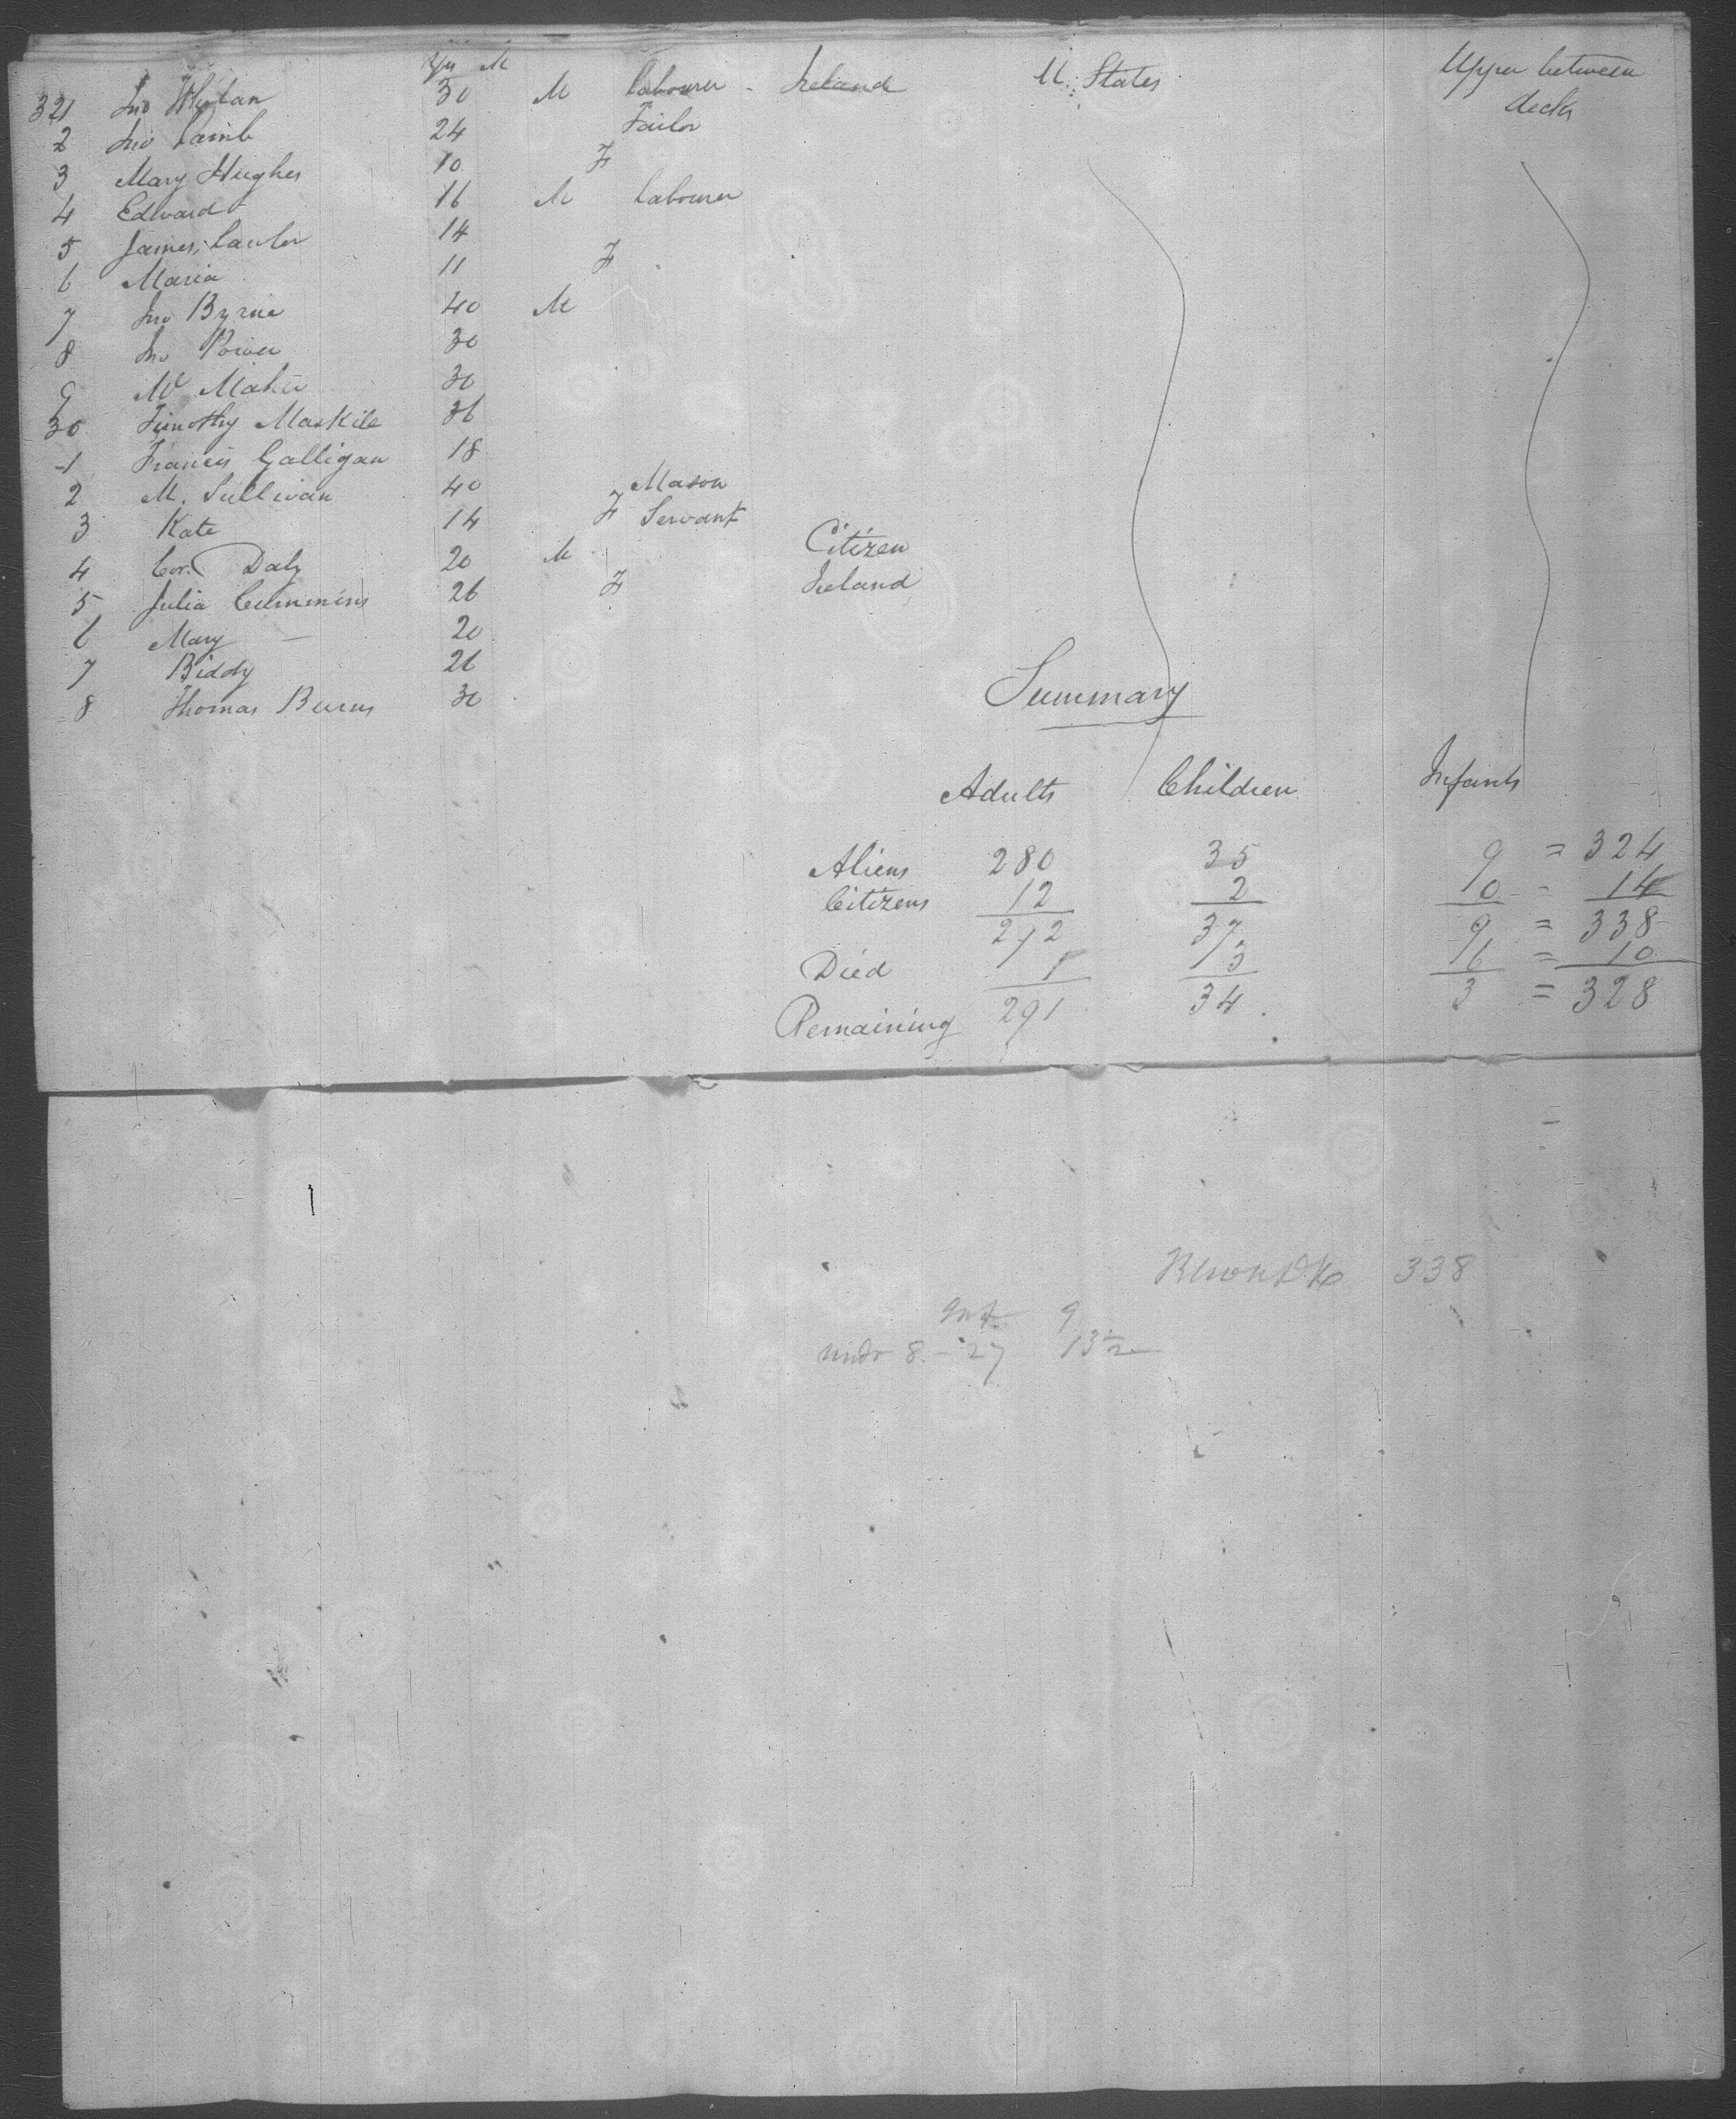 Yrs M
321 Jno Whelan 30 M Labourer - Ireland U. States Upper between decks
2 Jno Lamb 24 Tailor
3 Mary Hughes 10 F
4 Edward - 16 M Labourer
5 James Lawler 14
6 Maria 11 F
7 Jno Byrne 40 M
8 Jno Power 30
9 Mr Maher 30
30 Timothy Maskile 36
-1 Francis Galligan 18
2 M. Sullivan 40 Mason
3 Kate 14 F Servant
4 Cor. Daly 20 M Citizen
5 Julia Cummins 26 F Ireland
6 Mary — 20
7 Biddy 26
8 Thomas Burns 30
Summary
Adults Children Infants
Aliens 280 35 9 = 324
Citizens 12 2 0 - 14
292 37 9 = 338
Died 1 3 6 = 10
Remaining 291 34 3 = 328
338
Inf. 9
undr 8 - 27 13½